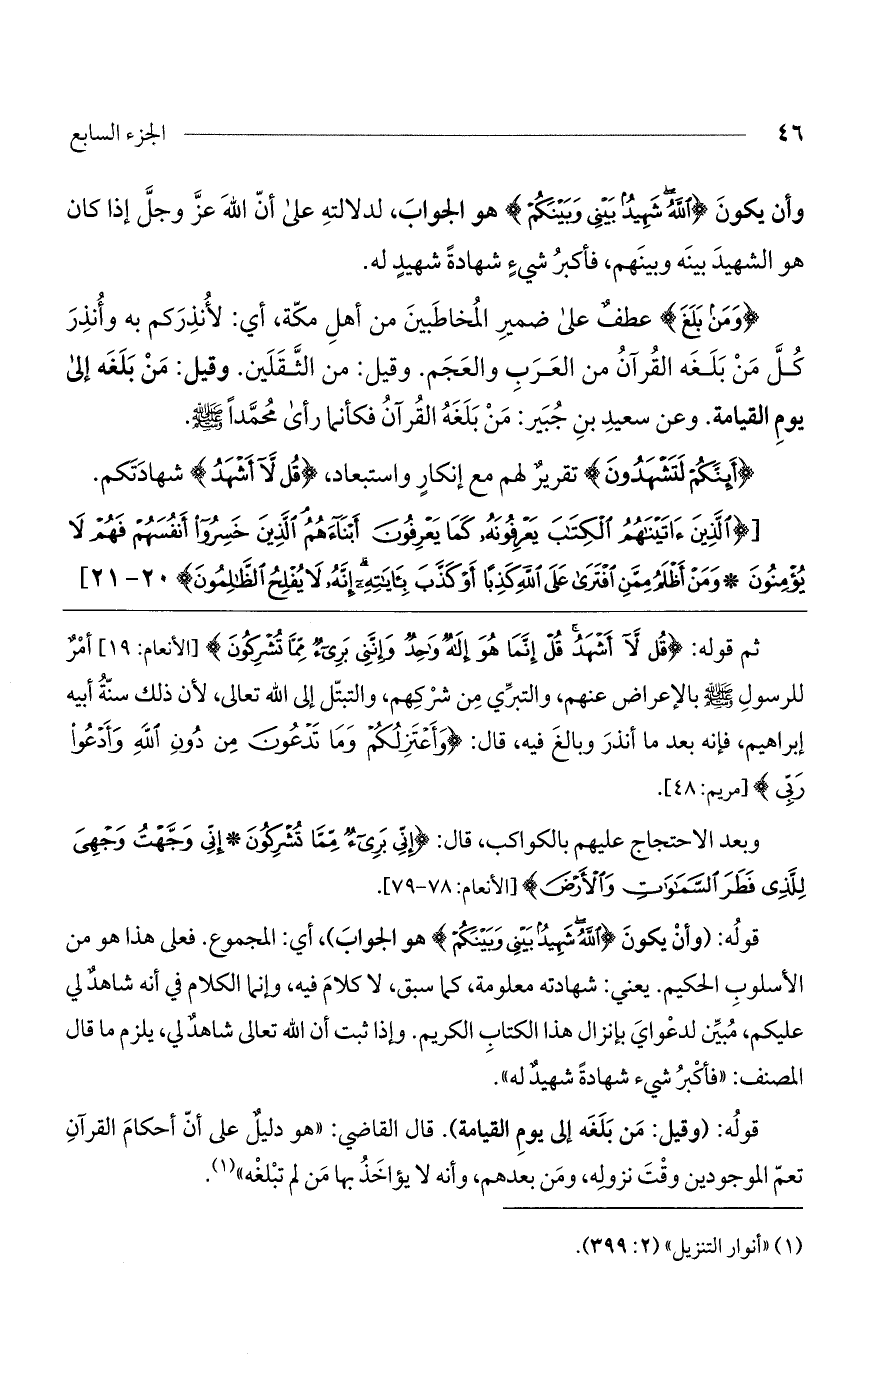 ٤٦ الجزء السابع
وأن يكونَ ﴿ٱللَّهُ شَهِيدٌۢ بَيْنِى وَبَيْنَكُمْ﴾ هو الجوابَ، لدلالتهِ على أنّ اللهَ عزَّ وجلَّ إذا كان
هو الشهيدَ بينَه وبينَهم، فأكبرُ شيءٍ شهادةً شهيدٍ له.
﴿وَمَنۢ بَلَغَ﴾ عطفٌ على ضميرِ المُخاطَبينَ من أهلِ مكّة، أي: لأُنذِرَكم به وأُنذِرَ
كُـلَّ مَنْ بَلَـغَه القُرآنُ من العَـرَبِ والعَجَم. وقيل: من الثَّـقَلَين. وقيل: مَنْ بَلَغَه إلى
يومِ القيامة. وعن سعيدِ بنِ جُبَير: مَنْ بَلَغَهُ القُرآنُ فكأنما رأى مُحمَّداً ﷺ.
﴿أَئِنَّكُمْ لَتَشْهَدُونَ﴾ تقريرٌ لهم مع إنكارٍ واستبعاد، ﴿قُل لَّآ أَشْهَدُ﴾ شهادَتَكم.
[﴿ٱلَّذِينَ ءَاتَيْنَٰهُمُ ٱلْكِتَٰبَ يَعْرِفُونَهُۥ كَمَا يَعْرِفُونَ أَبْنَآءَهُمُ ٱلَّذِينَ خَسِرُوٓا۟ أَنفُسَهُمْ فَهُمْ لَا
يُؤْمِنُونَ * وَمَنْ أَظْلَمُ مِمَّنِ ٱفْتَرَىٰ عَلَى ٱللَّهِ كَذِبًا أَوْ كَذَّبَ بِـَٔايَٰتِهِۦٓ ۗ إِنَّهُۥ لَا يُفْلِحُ ٱلظَّٰلِمُونَ﴾ ٢٠-٢١]
ثم قوله: ﴿قُل لَّآ أَشْهَدُ ۚ قُلْ إِنَّمَا هُوَ إِلَٰهٌ وَٰحِدٌ وَإِنَّنِى بَرِىٓءٌ مِّمَّا تُشْرِكُونَ﴾ [الأنعام: ١٩] أمْرٌ
للرسولِ ﷺ بالإعراض عنهم، والتبرِّي مِن شرْكِهم، والتبتّل إلى الله تعالى، لأن ذلك سنّةُ أبيه
إبراهيم، فإنه بعد ما أنذرَ وبالغَ فيه، قال: ﴿وَأَعْتَزِلُكُمْ وَمَا تَدْعُونَ مِن دُونِ ٱللَّهِ وَأَدْعُوا۟
رَبِّى﴾ [مريم: ٤٨].
وبعد الاحتجاج عليهم بالكواكب، قال: ﴿إِنِّى بَرِىٓءٌ مِّمَّا تُشْرِكُونَ * إِنِّى وَجَّهْتُ وَجْهِىَ
لِلَّذِى فَطَرَ ٱلسَّمَٰوَٰتِ وَٱلْأَرْضَ﴾ [الأنعام: ٧٨-٧٩].
قولُه: (وأنْ يكونَ ﴿ٱللَّهُ شَهِيدٌۢ بَيْنِى وَبَيْنَكُمْ﴾ هو الجوابَ)، أي: المجموع. فعلى هذا هو من
الأسلوبِ الحكيم. يعني: شهادته معلومة، كما سبق، لا كلامَ فيه، وإنما الكلام في أنه شاهدٌ لي
عليكم، مُبيِّن لدعْوايَ بإنزال هذا الكتابِ الكريم. وإذا ثبت أن الله تعالى شاهدٌ لي، يلزم ما قال
المصنف: «فأكْبرُ شيء شهادةً شهيدٌ له».
قولُه: (وقيل: مَن بَلَغَه إلى يومِ القيامة). قال القاضي: «هو دليلٌ على أنّ أحكامَ القرآنِ
تعمّ الموجودين وقْتَ نزولِه، ومَن بعدهم، وأنه لا يؤاخَذُ بها مَن لم تبْلغْه»(١).
(١) «أنوار التنزيل» (٢: ٣٩٩).